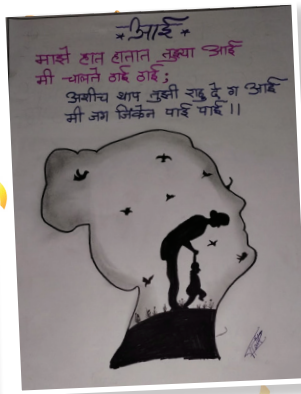 आई
माझे हात हातात तुझ्या आई
मी चालते ठाई ठाई;
अशीच थाप तुझी राहू दे ग आई
मी जग जिंकेन पाई पाई ||